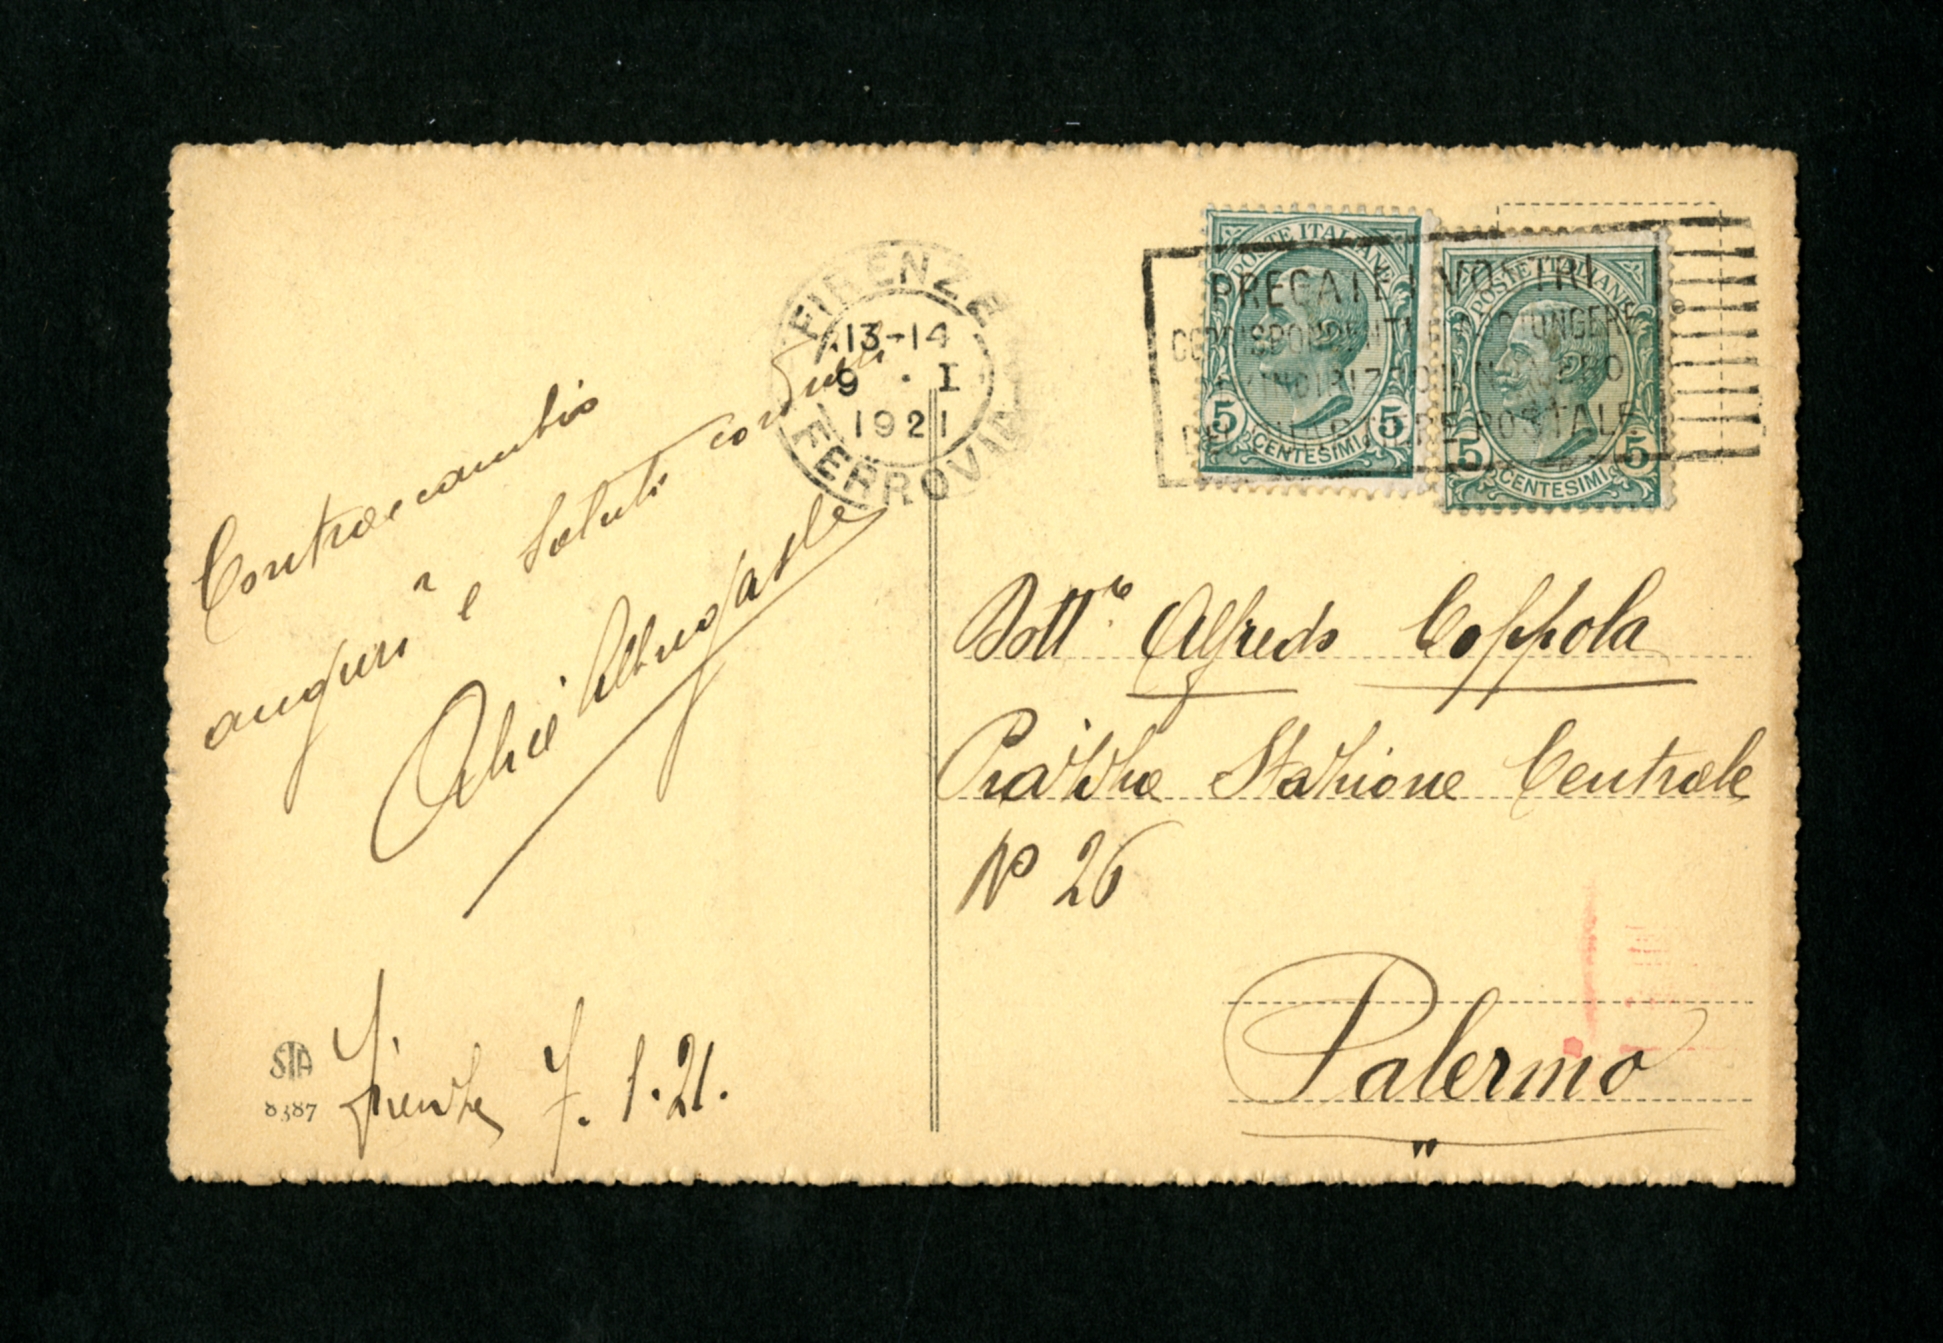 Contraccambio
auguri e saluti cordiali
Alice
Firenze 7.1.21.
STA
8387
FIRENZE
13-14
9 · I
1921
FERROVIA
PREGATE I VOSTRI
CORRISPONDENTI DI AGGIUNGERE
ALL'INDIRIZZO IL NUMERO
DEL QUARTIERE POSTALE
POSTE ITALIANE
5 5
CENTESIMI
POSTE ITALIANE
5 5
CENTESIMI
Dott.re Alfredo Coppola
Piazza Stazione Centrale
No 26
Palermo